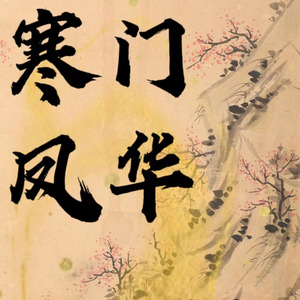 寒门
凤华